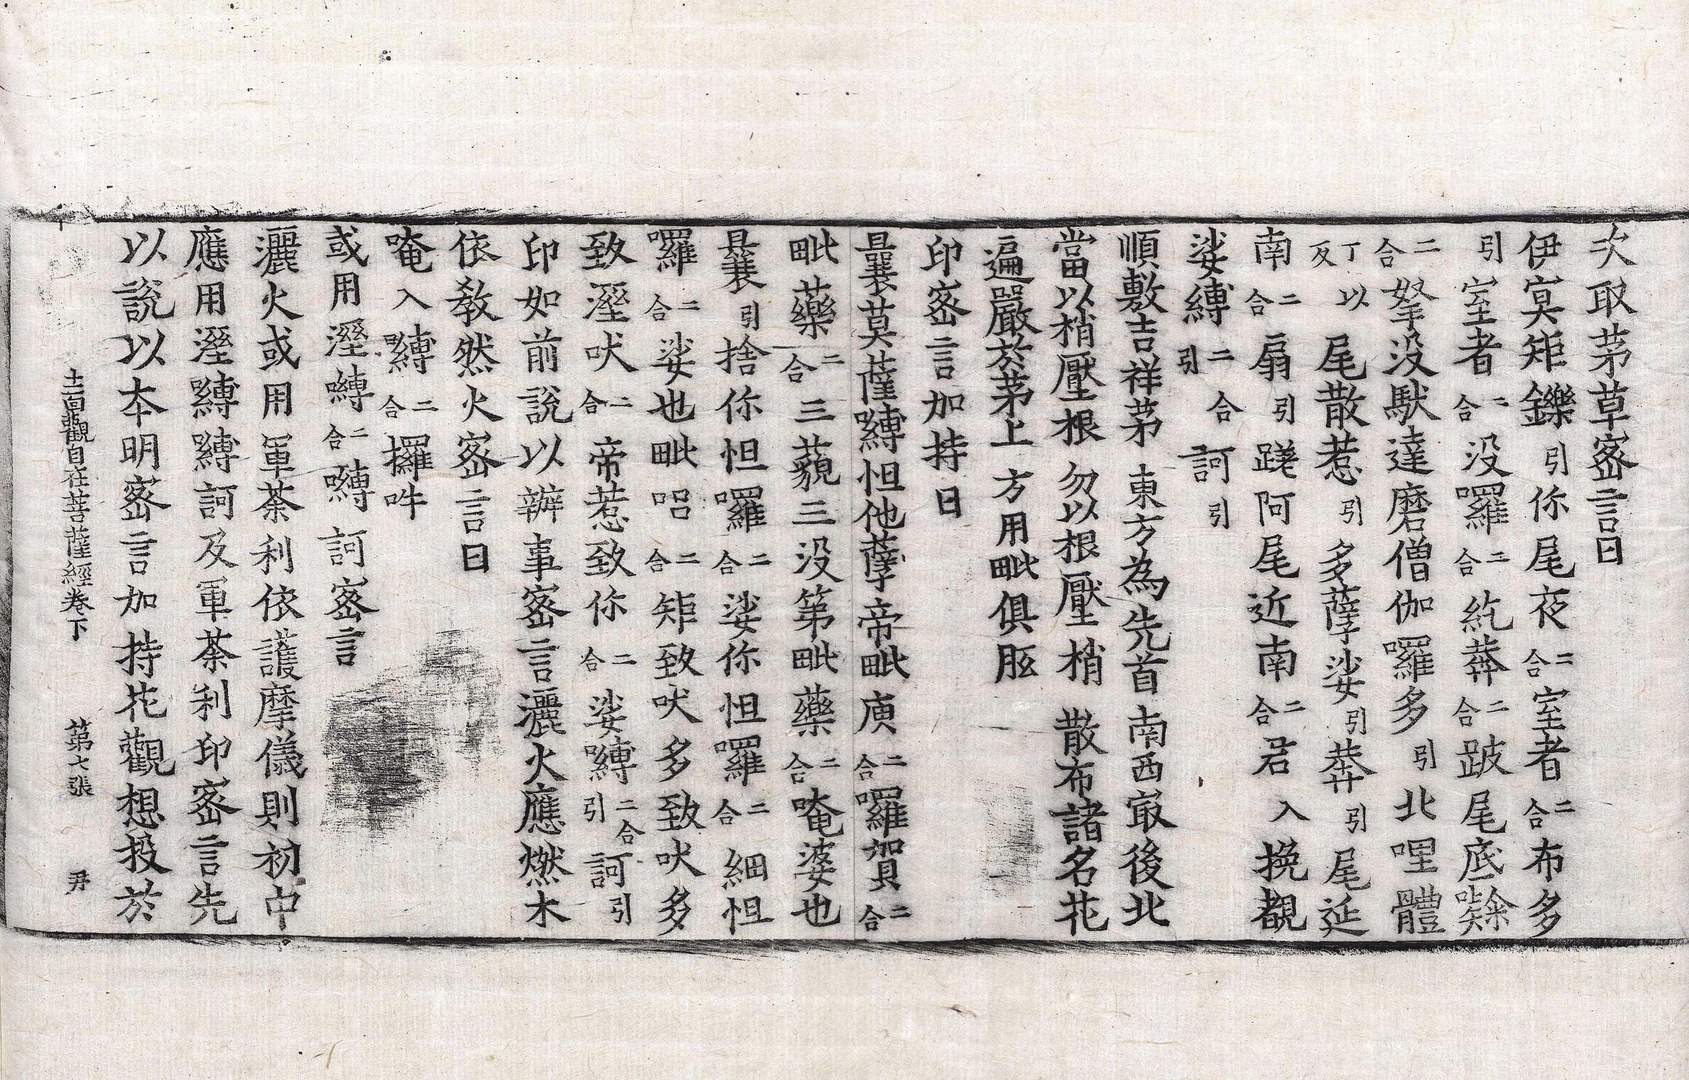 次取茅草密言曰
伊寘矩鑠引你尾夜二合室者二合布多
引室者二合没囉二合訖莽二合跛尾底𡄦
二合拏没馱達磨僧伽囉多引北哩體
丁以反尾散惹引多薩娑引莽引尾延
南二合扇引蹉阿尾近南二合君入挽覩
娑縛二合引訶引
順敷吉祥茅東方為先首南西㝡後北
當以梢壓根勿以根壓梢散布諸名花
遍嚴於茅上方用毗俱胝
印密言加持曰
曩莫薩嚩怛他孽帝毗庾二合囉賀二合
毗藥二合三藐三没第毗藥二合唵婆也
曩引捨你怛囉二合娑你怛囉二合細怛
囉二合娑也毗㗛二合矩致吠多致吠多
致溼吠二合帝惹致你二合娑嚩二合引訶引
印如前說以辦事密言灑火應燃木
依教然火密言曰
唵入嚩二合攞吽
或用溼嚩二合嚩訶密言
灑火或用軍荼利依護摩儀則初中
應用溼嚩縛訶及軍荼利印密言先
以說以本明密言加持花觀想投於
十一面觀自在菩薩經卷下 第七張 丹